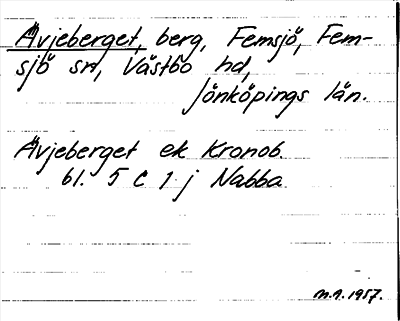 Ävjeberget, berg, Femsjö, Fem-
sjö sn, Västbo hd,
Jönköpings län.
Ävjeberget ek Kronob.
bl. 5 C 1 j Nabba
M.A. 1957.